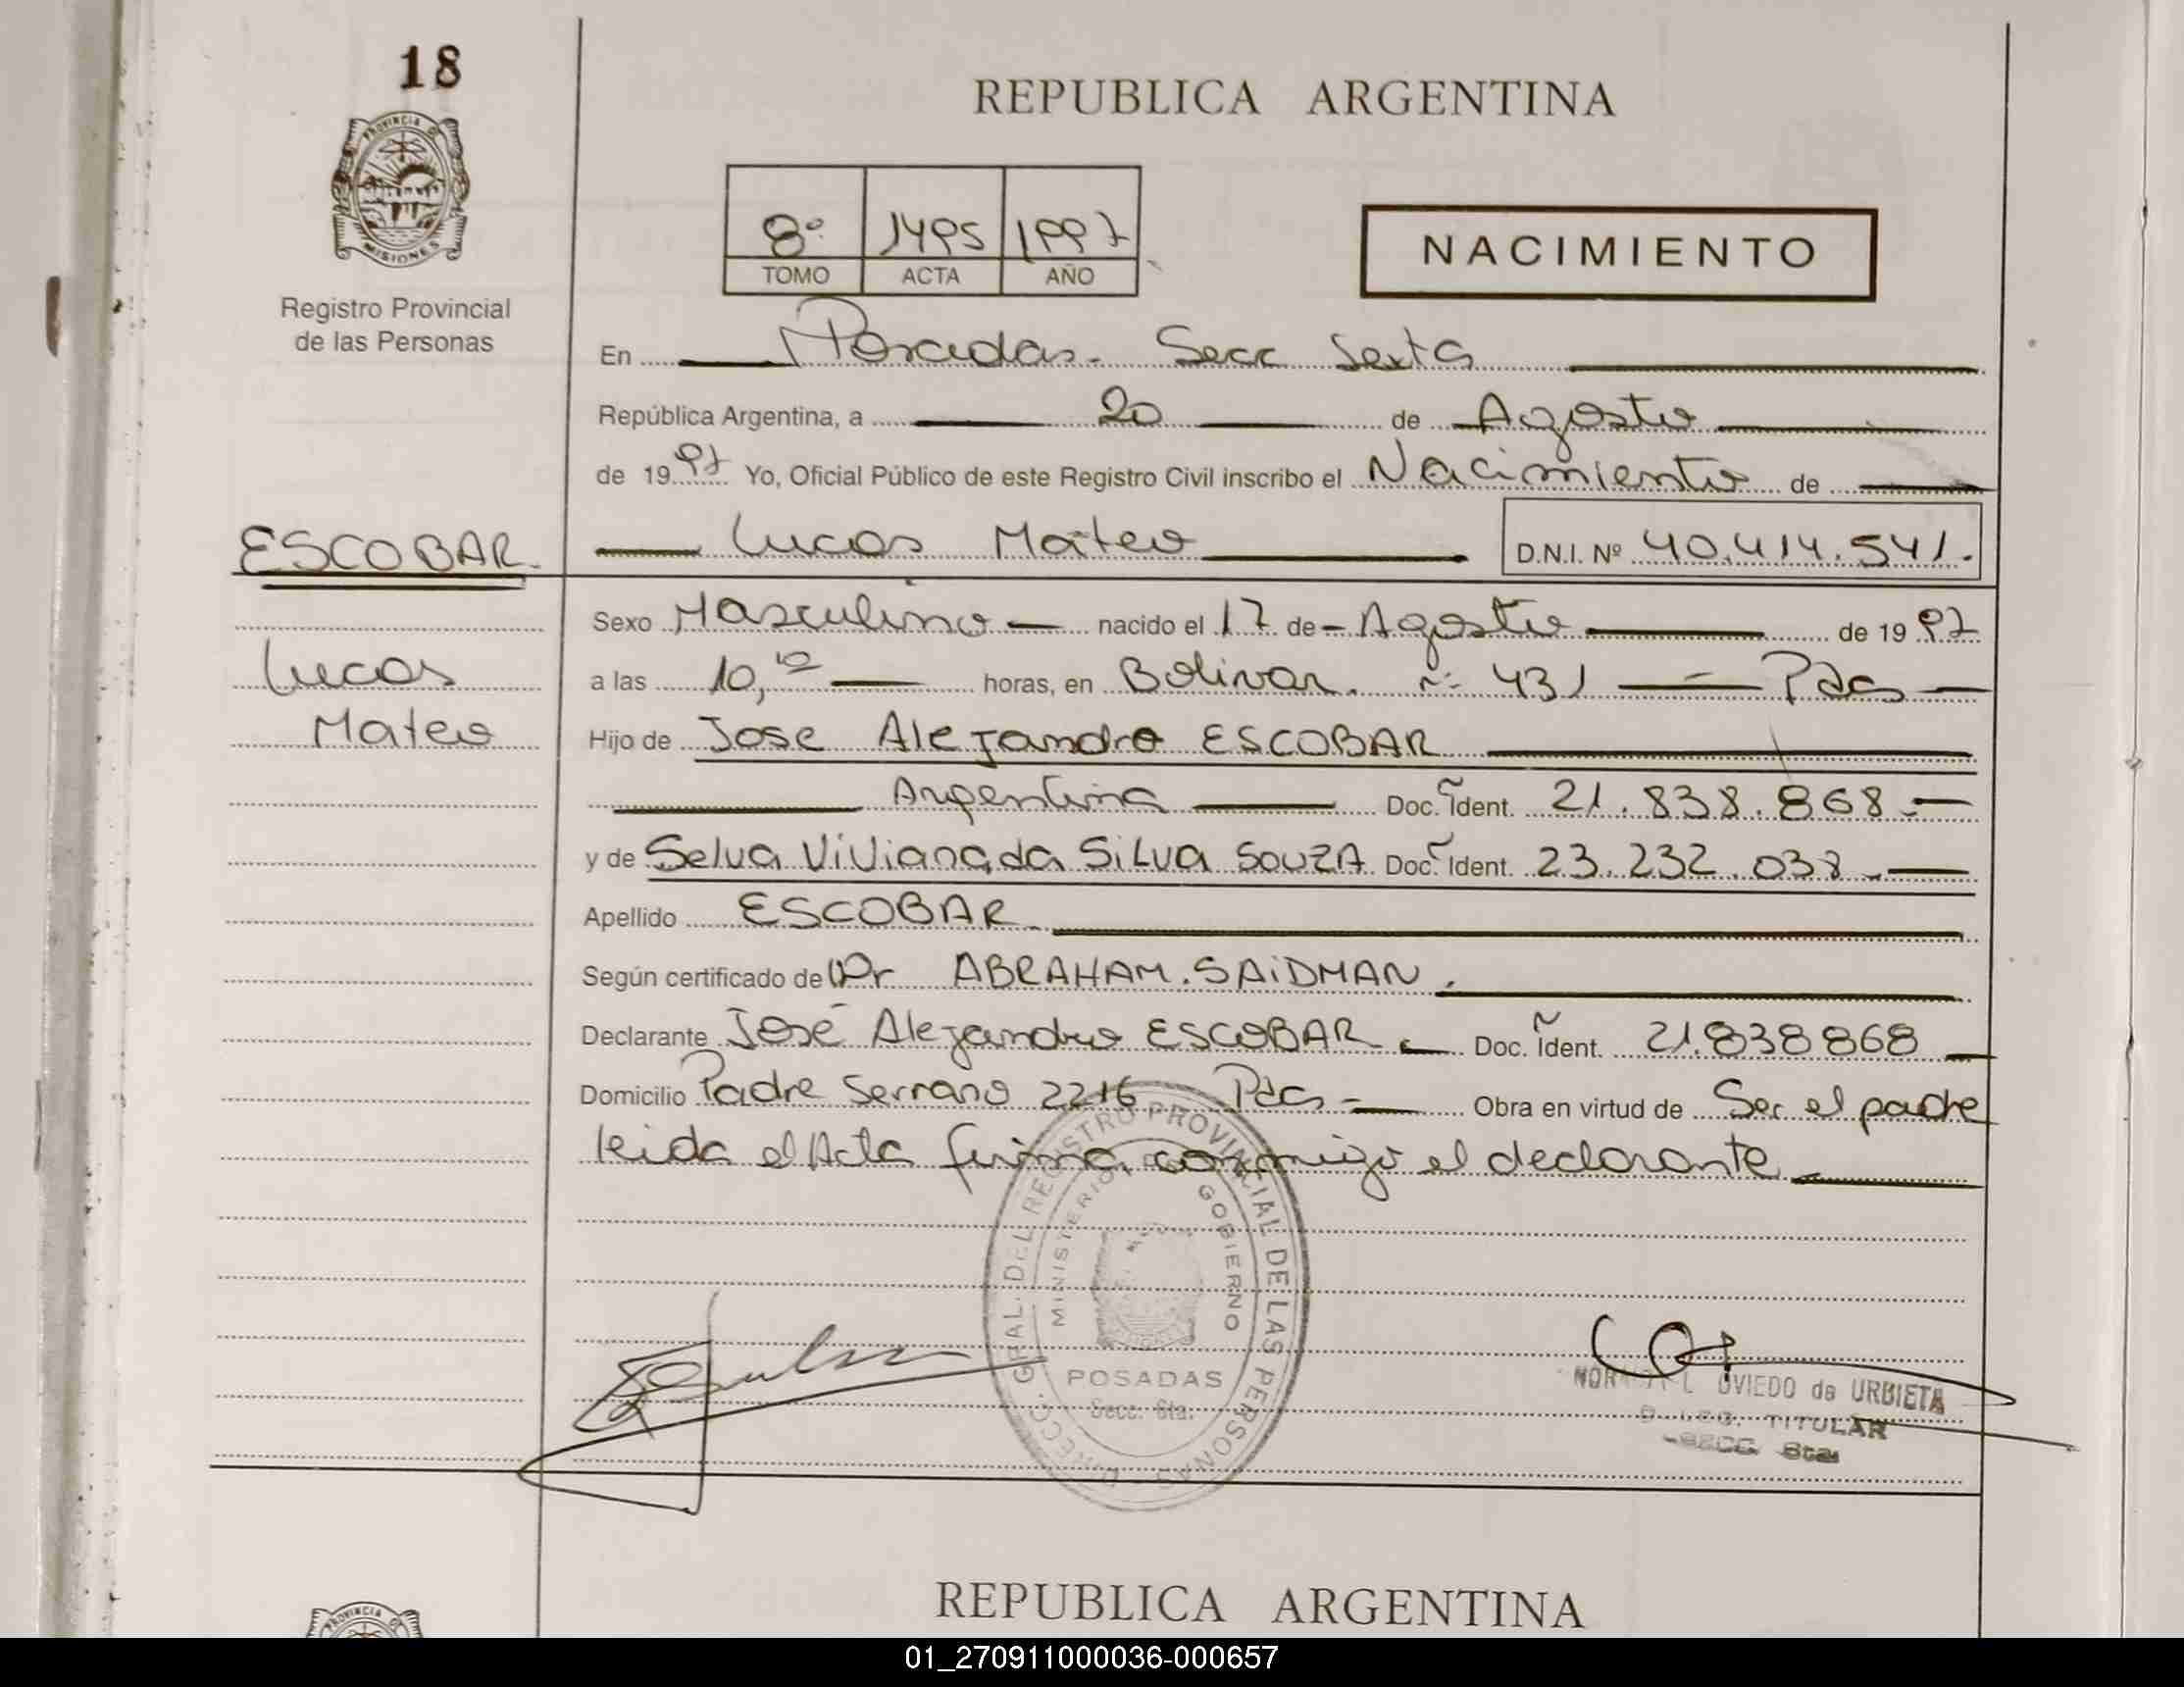 18
REPUBLICA ARGENTINA
PROVINCIA DE
MISIONES
Registro Provincial
de las Personas
8º 1495 1997
TOMO ACTA AÑO
NACIMIENTO
En Posadas. Secc Sexta
República Argentina, a 20 de Agosto
de 1997 Yo, Oficial Público de este Registro Civil inscribo el Nacimiento de
ESCOBAR
Lucas Mateo D.N.I. Nº 40.414.541.
Sexo Masculino nacido el 17 de Agosto de 1997
Lucas
a las 10,10 horas, en Bolivar. nº 431 Pdas
Mateo
Hijo de Jose Alejandro ESCOBAR
Argentina Doc. Ident. 21.838.868.
y de Selva Viviana da Silva SOUZA Doc. Ident. 23.232.038.
Apellido ESCOBAR
Según certificado de Dr ABRAHAM. SAIDMAN.
Declarante José Alejandro ESCOBAR Doc. Ident. 21.838868
Domicilio Padre Serrano 2216 Pdas Obra en virtud de Ser el padre
leida el Acta firma conmigo el declarante
DIRECC. GRAL. DEL REGISTRO PROVINCIAL DE LAS PERSONAS
MINISTERIO GOBIERNO
POSADAS
Secc. 6ta.
OVIEDO de URBIETA
TITULAR
SECC 6ta
REPUBLICA ARGENTINA
PROVINCIA DE
01_270911000036-000657